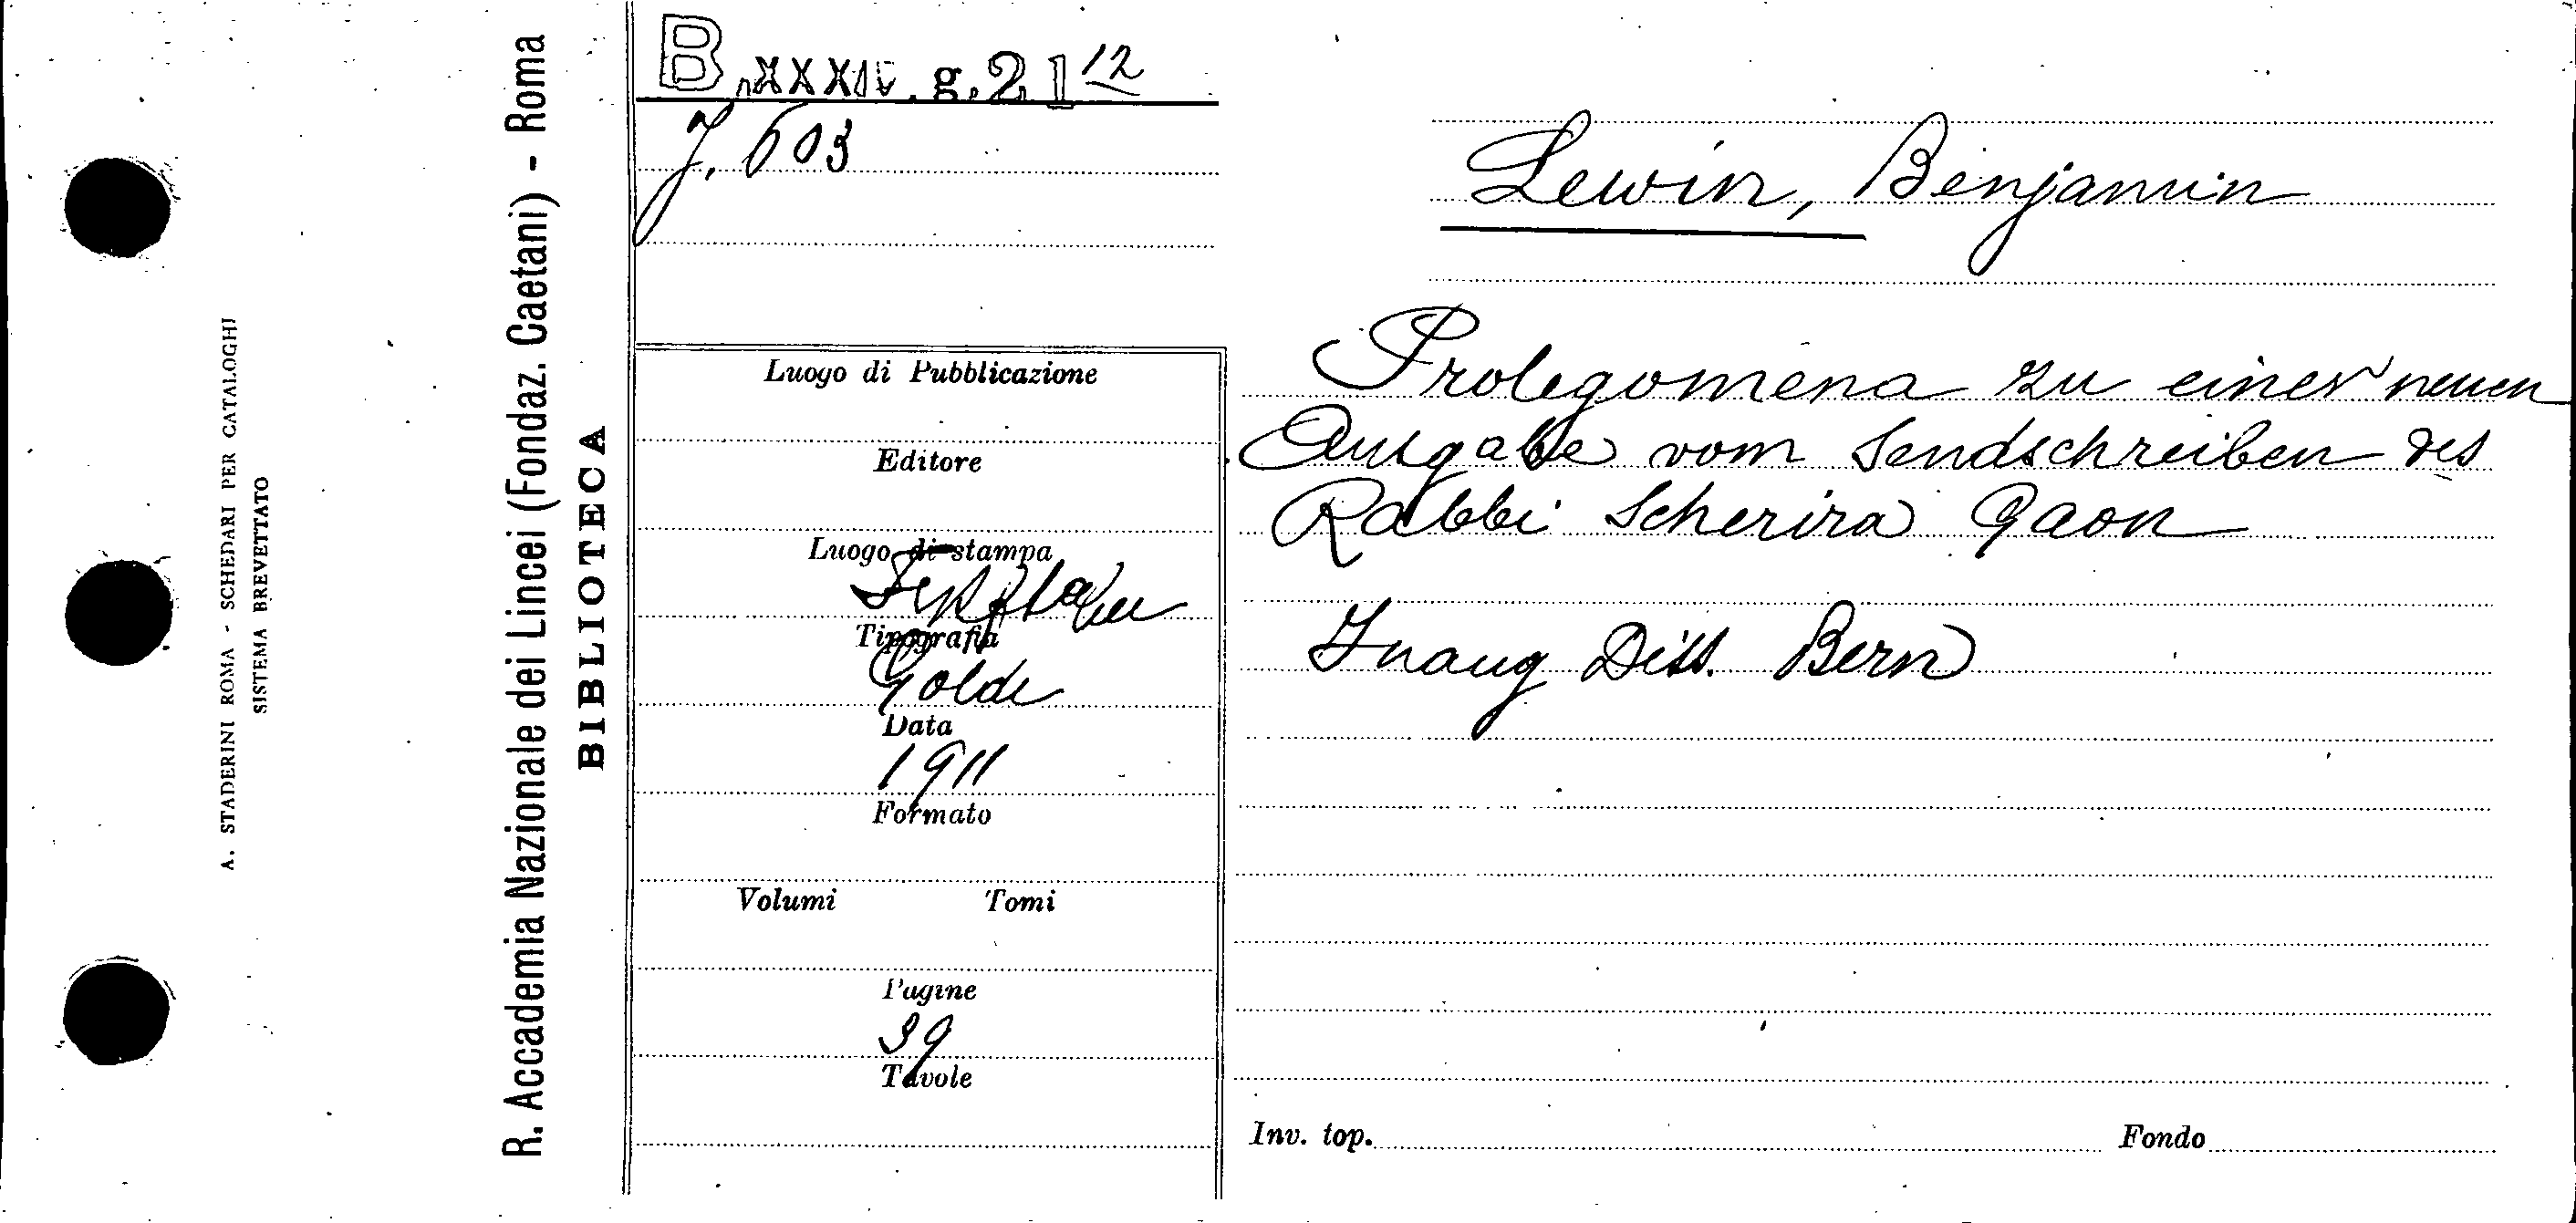 B.XXXIV.g.21 12
J. 603
Lewin, Benjamin
Prolegomena zu einer neuen
Ausgabe vom Sendschreiben des
Rabbi Scherira Gaon
Inaug Diss. Bern
Luogo di Pubblicazione
Editore
Luogo di stampa
Tipografia
Golde
Data
1911
Formato
Volumi Tomi
Pagine
39
Tavole
Inv. top. Fondo
R. Accademia Nazionale dei Lincei (Fondaz. Caetani) - Roma
BIBLIOTECA
A. STADERINI ROMA - SCHEDARI PER CATALOGHI
SISTEMA BREVETTATO